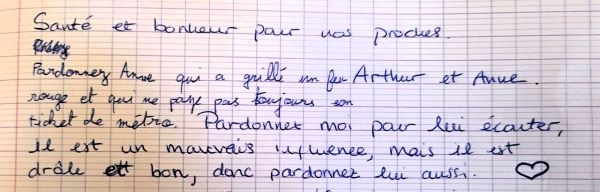 Santé et bonheur pour nos proches.
Pardonnez Anne qui a grillé un feu Arthur et Anne.
rouge et qui ne paye pas toujours son
ticket de métro. Pardonnet moi pour lui écouter,
il est un mauvais influence, mais il est
drôle et bon, donc pardonnez lui aussi.